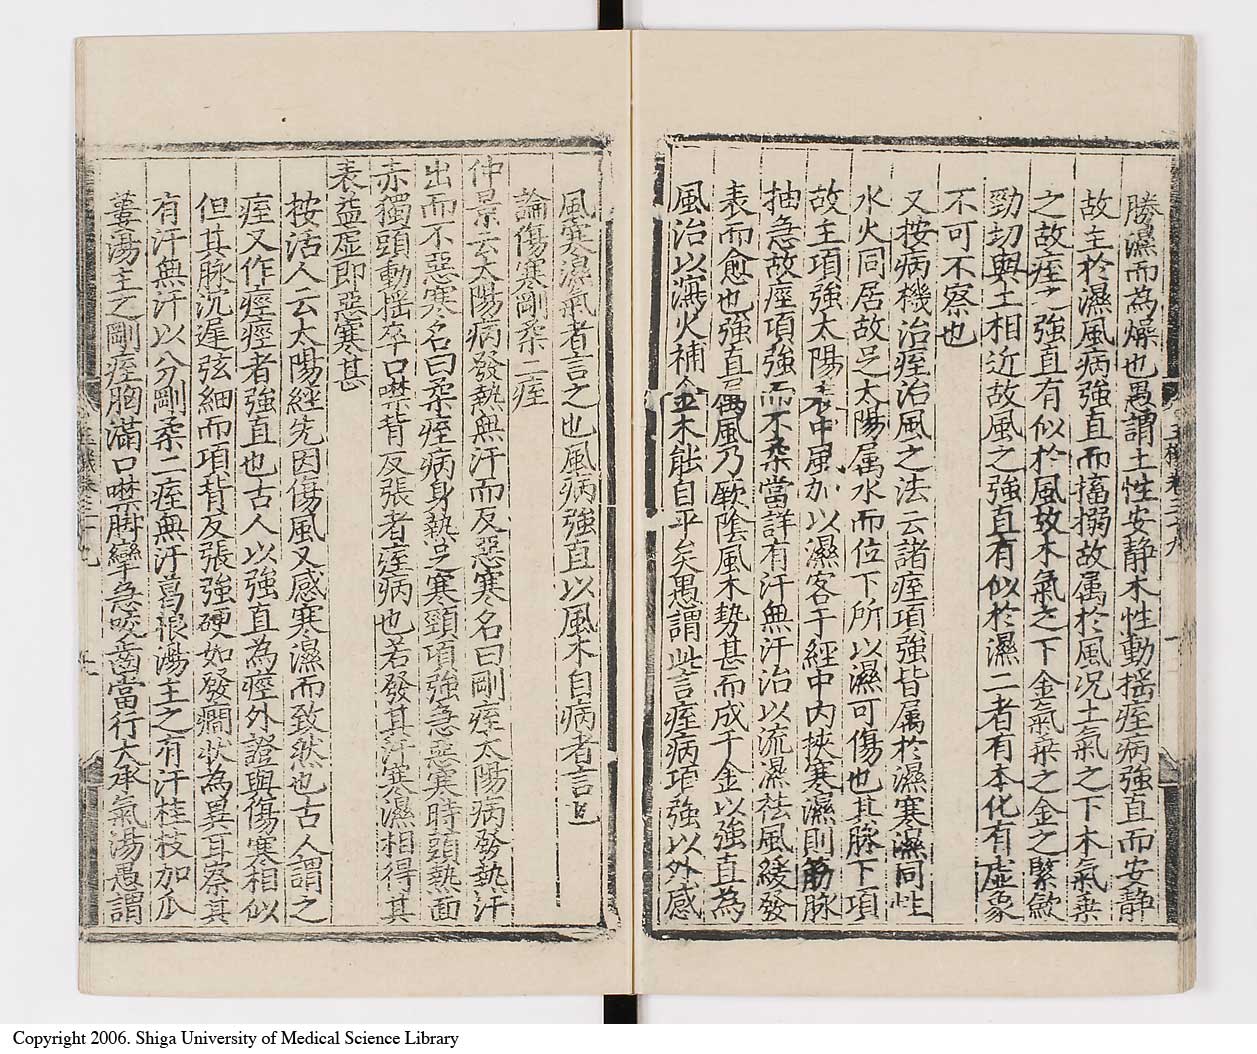 勝濕而為燥也愚謂土性安靜木性動揺痓病強直而安靜
故主於濕風病強直而搐搦故属於風况土氣之下木氣乗
之故痓之強直有似於風故木氣之下金氣乗之金之緊歛
勁切與土相近故風之強直有似於濕二者有本化有虚象
不可不察也
又按病機治痓治風之法云諸痓項強皆属於濕寒濕同性
水火同居故足太陽属水而位下所以濕可傷也其脉下項
故主項強太陽表中風加以濕客于經中内挾寒濕則筋脉
抽急故痓項強而不柔當詳有汗無汗治以流濕祛風緩發
表而愈也強直偶風乃厥陰風木勢甚而成千金以強直為
風治以瀉火補金木能自平矣愚謂此言痓病項強以外感
風寒濕氣者言之也風病強直以風木自病者言
論傷寒剛柔二痓
仲景云太陽病發熱無汗而反惡寒名曰剛痓太陽病發熱汗
出而不惡寒名曰柔痓病身熱足寒頸項強急惡寒時頭熱面
赤獨頭動揺卒口噤背反張者痓病也若發其汗寒濕相得其
表益虚即惡寒甚
按活人云太陽經先因傷風又感寒濕而致然也古人謂之
痓又作痙痙者強直也古人以強直為痙外證與傷寒相似
但其脉沉遲弦細而項背反張強硬如發癇状為異耳察其
有汗無汗以分剛柔二痓無汗葛根湯主之有汗桂枝加瓜
蔞湯主之剛痓胸滿口噤脚攣急咬齒當行大承氣湯愚謂
Copyright 2006. Shiga University of Medical Science Library